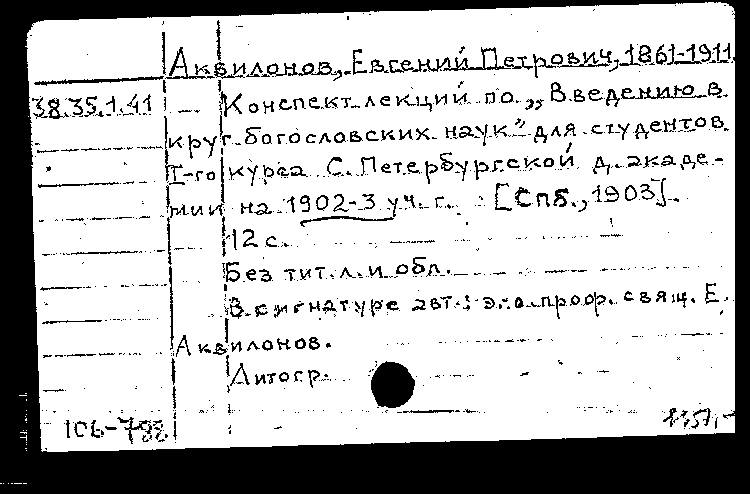 Аквилонов, Евгений Петрович, 1861-1911.
38.35.1.41 — Конспект лекций по „Введению в
круг богословских наук" для студентов
I-го курса С. Петербургской д. акаде-
мии на 1902-3 уч. г. [Спб., 1903].
12 с.
Без тит. л. и обл.
В сигнатуре авт.: э.о. проф. свящ. Е.
Аквилонов.
Литогр.
106-788